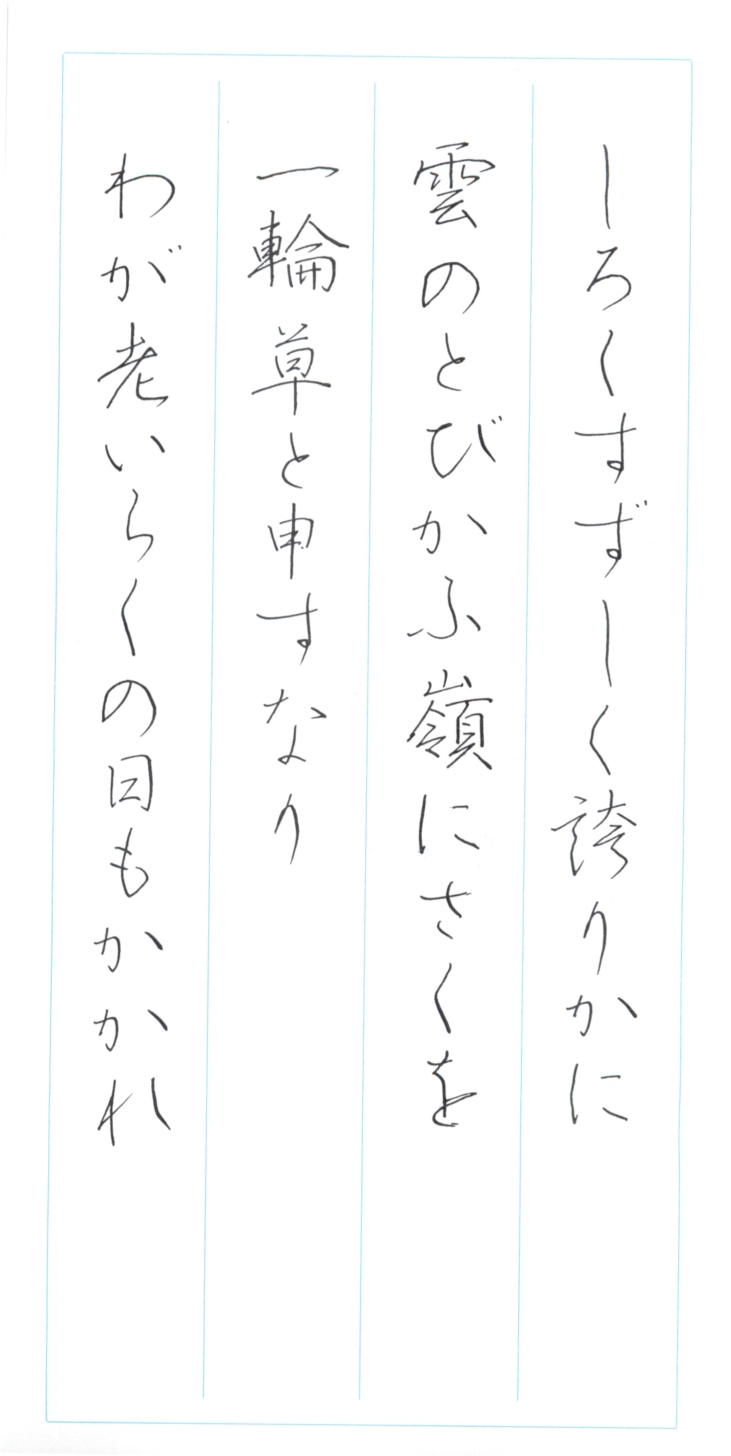 しろくすずしく誇りかに
雲のとびかふ嶺にさくを
一輪草と申すなり
わが老いらくの日もかかれ